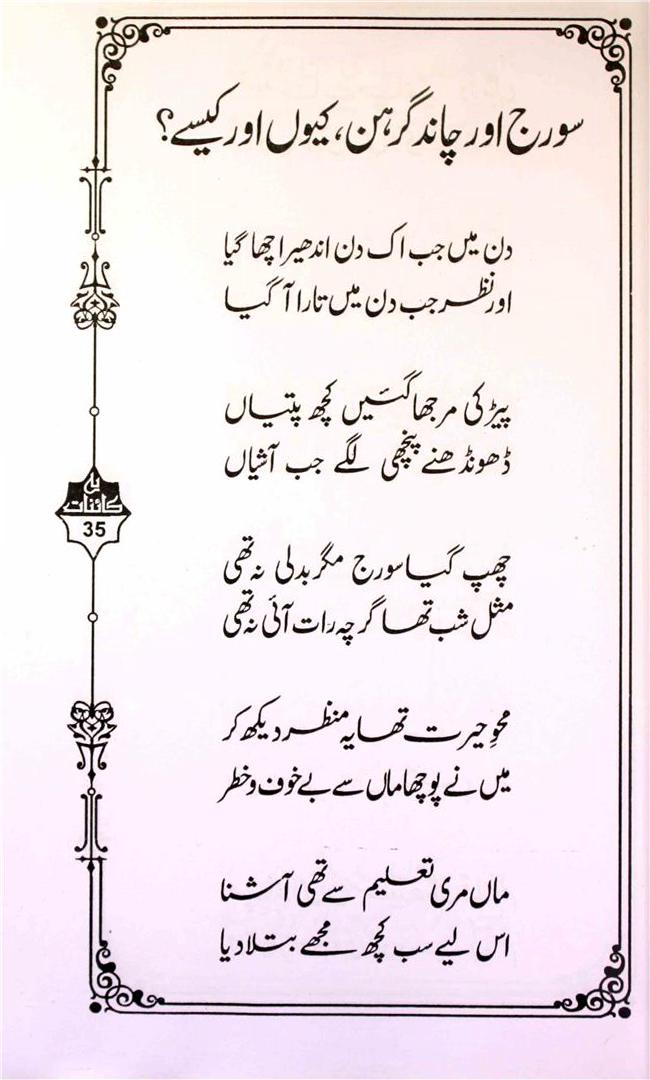 سورج اور چاند گرہن، کیوں اور کیسے؟
دن میں جب اک دن اندھیرا چھا گیا
اور نظر جب دن میں تارا آ گیا
پیڑ کی مرجھا گئیں کچھ پتیاں
ڈھونڈھنے پنچھی لگے جب آشیاں
چھپ گیا سورج مگر بدلی نہ تھی
مثل شب تھا گرچہ رات آئی نہ تھی
محوِ حیرت تھا یہ منظر دیکھ کر
میں نے پوچھا ماں سے بے خوف و خطر
ماں مری تعلیم سے تھی آشنا
اس لیے سب کچھ مجھے بتلا دیا
کائنات
35